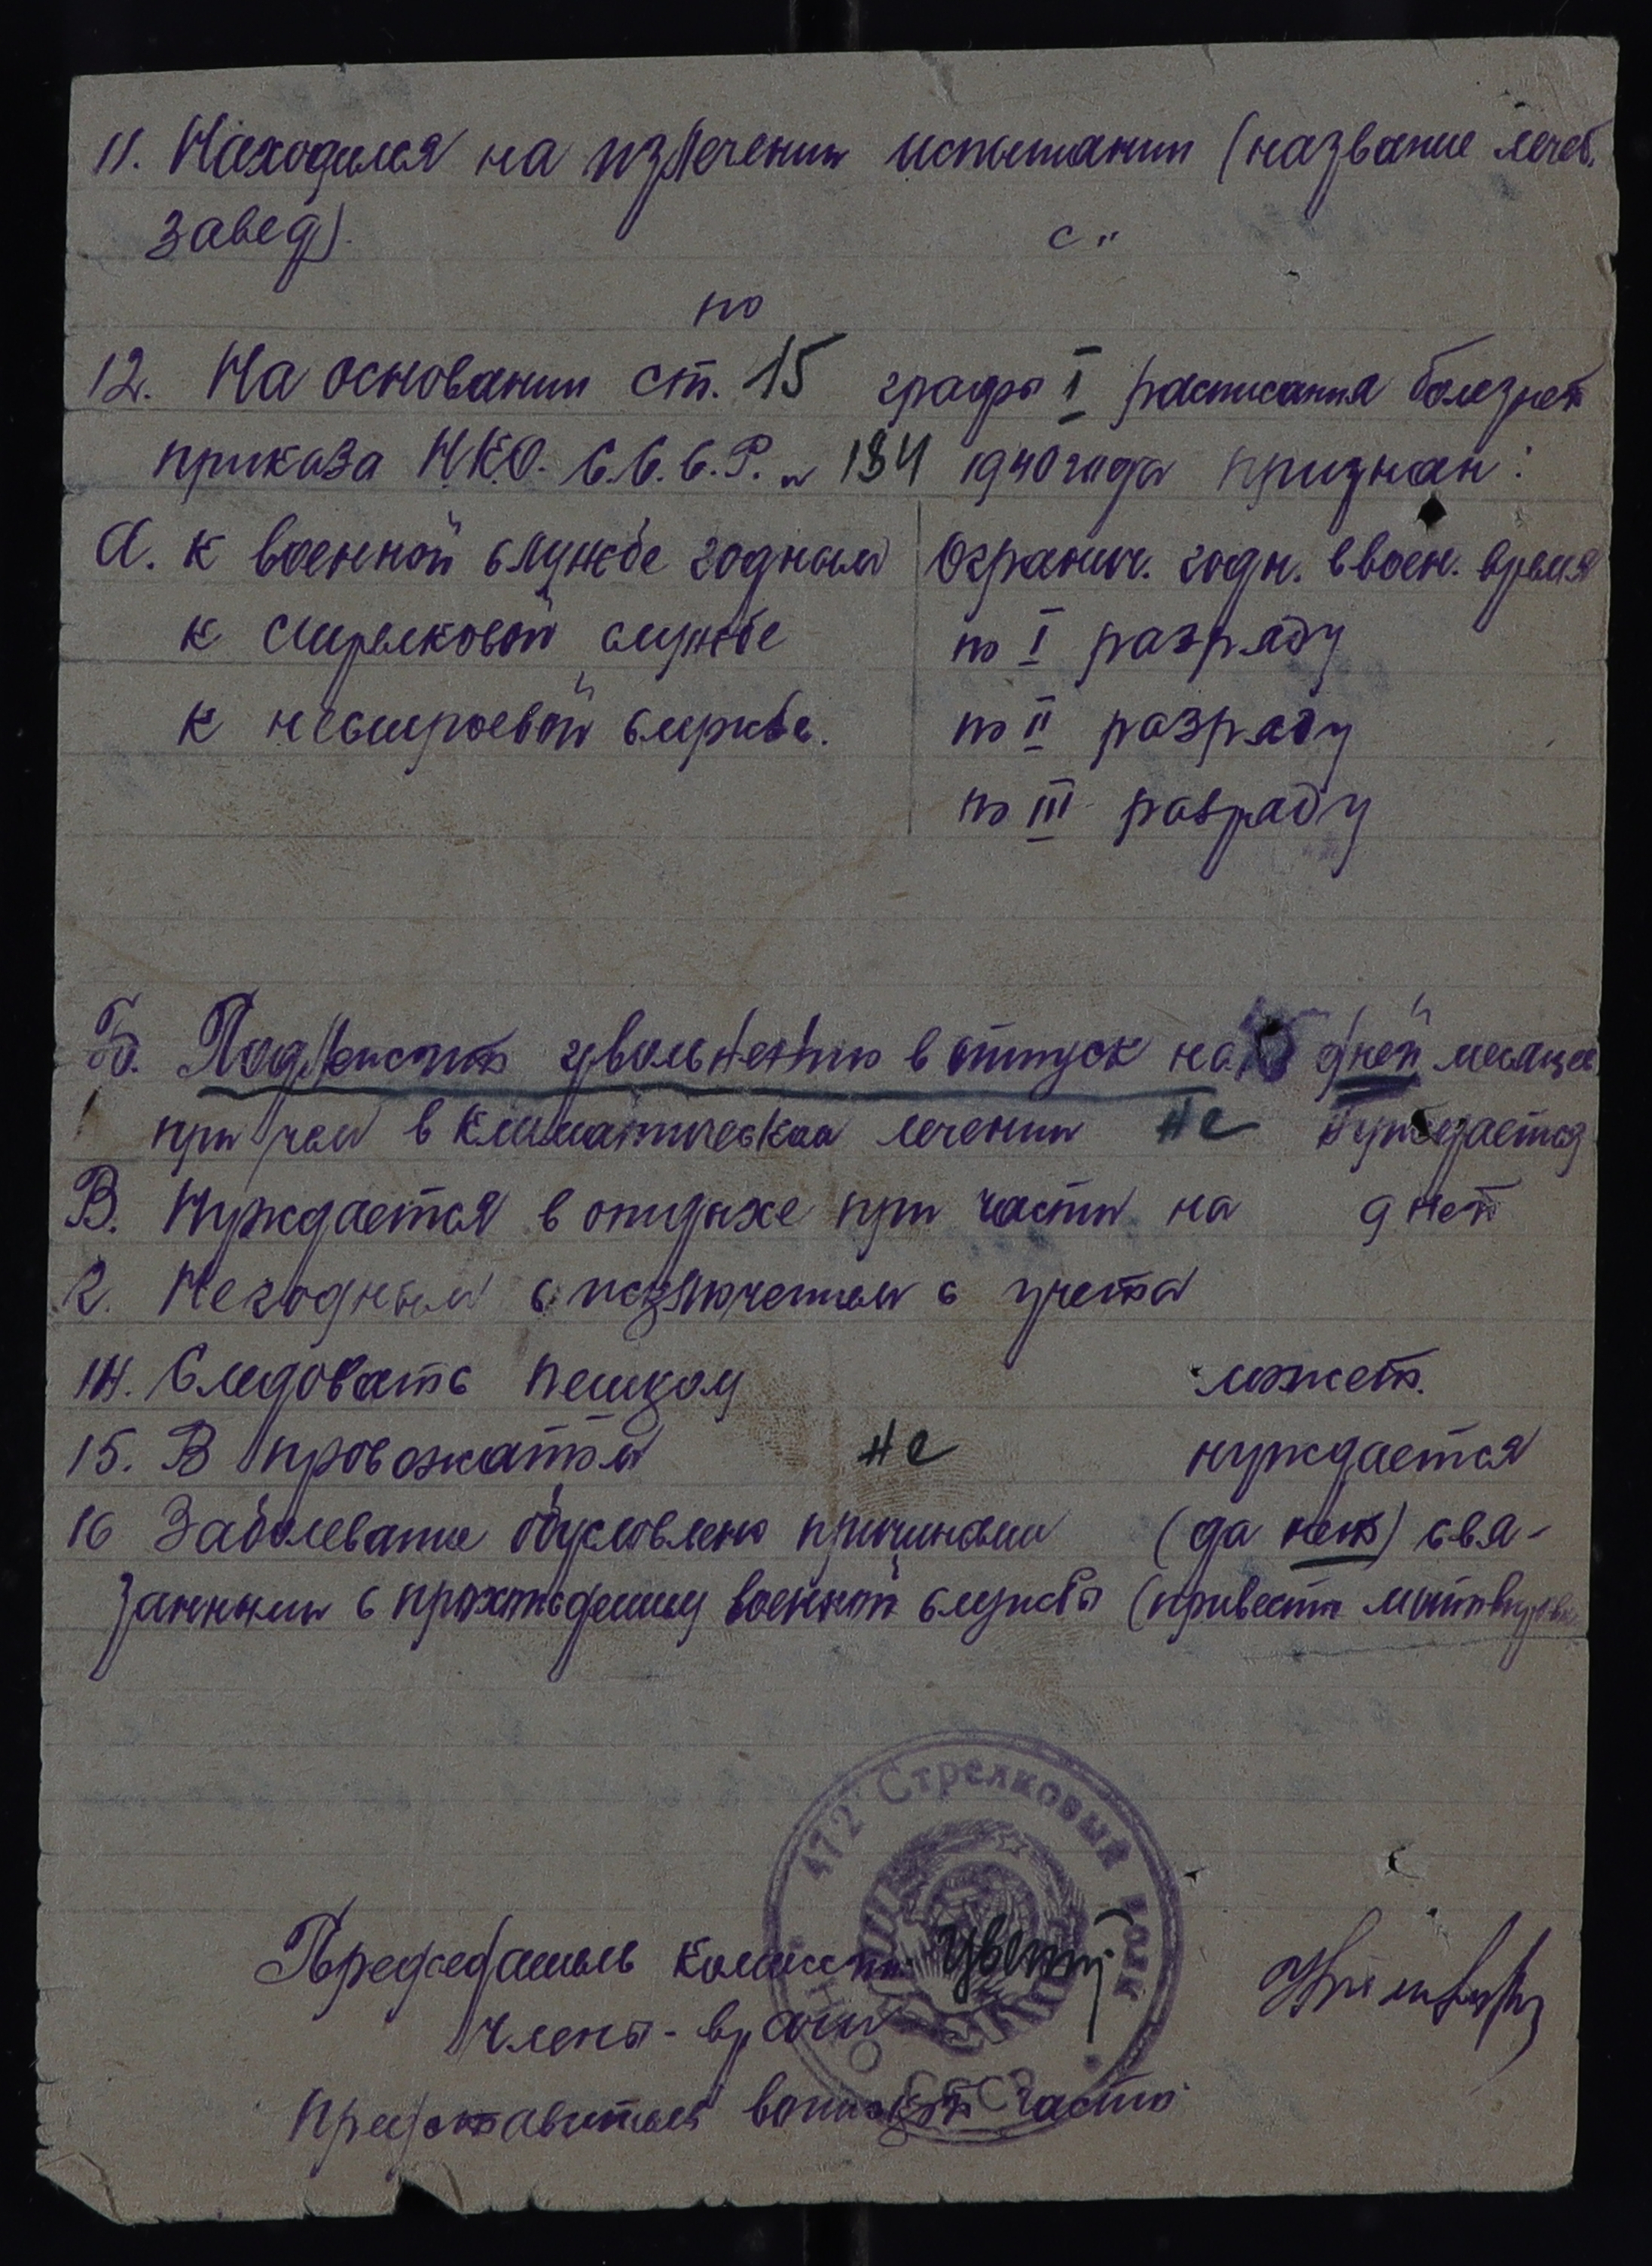 11. Находился на излечении испытании (название лечеб.
завед). с „
по
12. На основании ст. 15 графы I расписания болезней
приказа Н.К.О. С.С.С.Р. № 184 1940 года признан:
А. к военной службе годным Огранич. годн. в воен. время
к стрелковой службе по I разряду
к нестроевой службе. по II разряду
по III разряду
Б. Подлежит увольнению в отпуск на дней месяцев
при чем в климатическом лечении не нуждается
В. Нуждается в отдыхе при части на дней
Г. Негодным с исключением с учета
14. Следовать пешком может.
15. В провожатом не нуждается
16 Заболевание обусловлено причинами (да нет) свя-
занными с прохождению военной службы (привести
472 Стрелковый полк
СССР
Председатель комиссии
Члены - врачи
Представитель воинской части